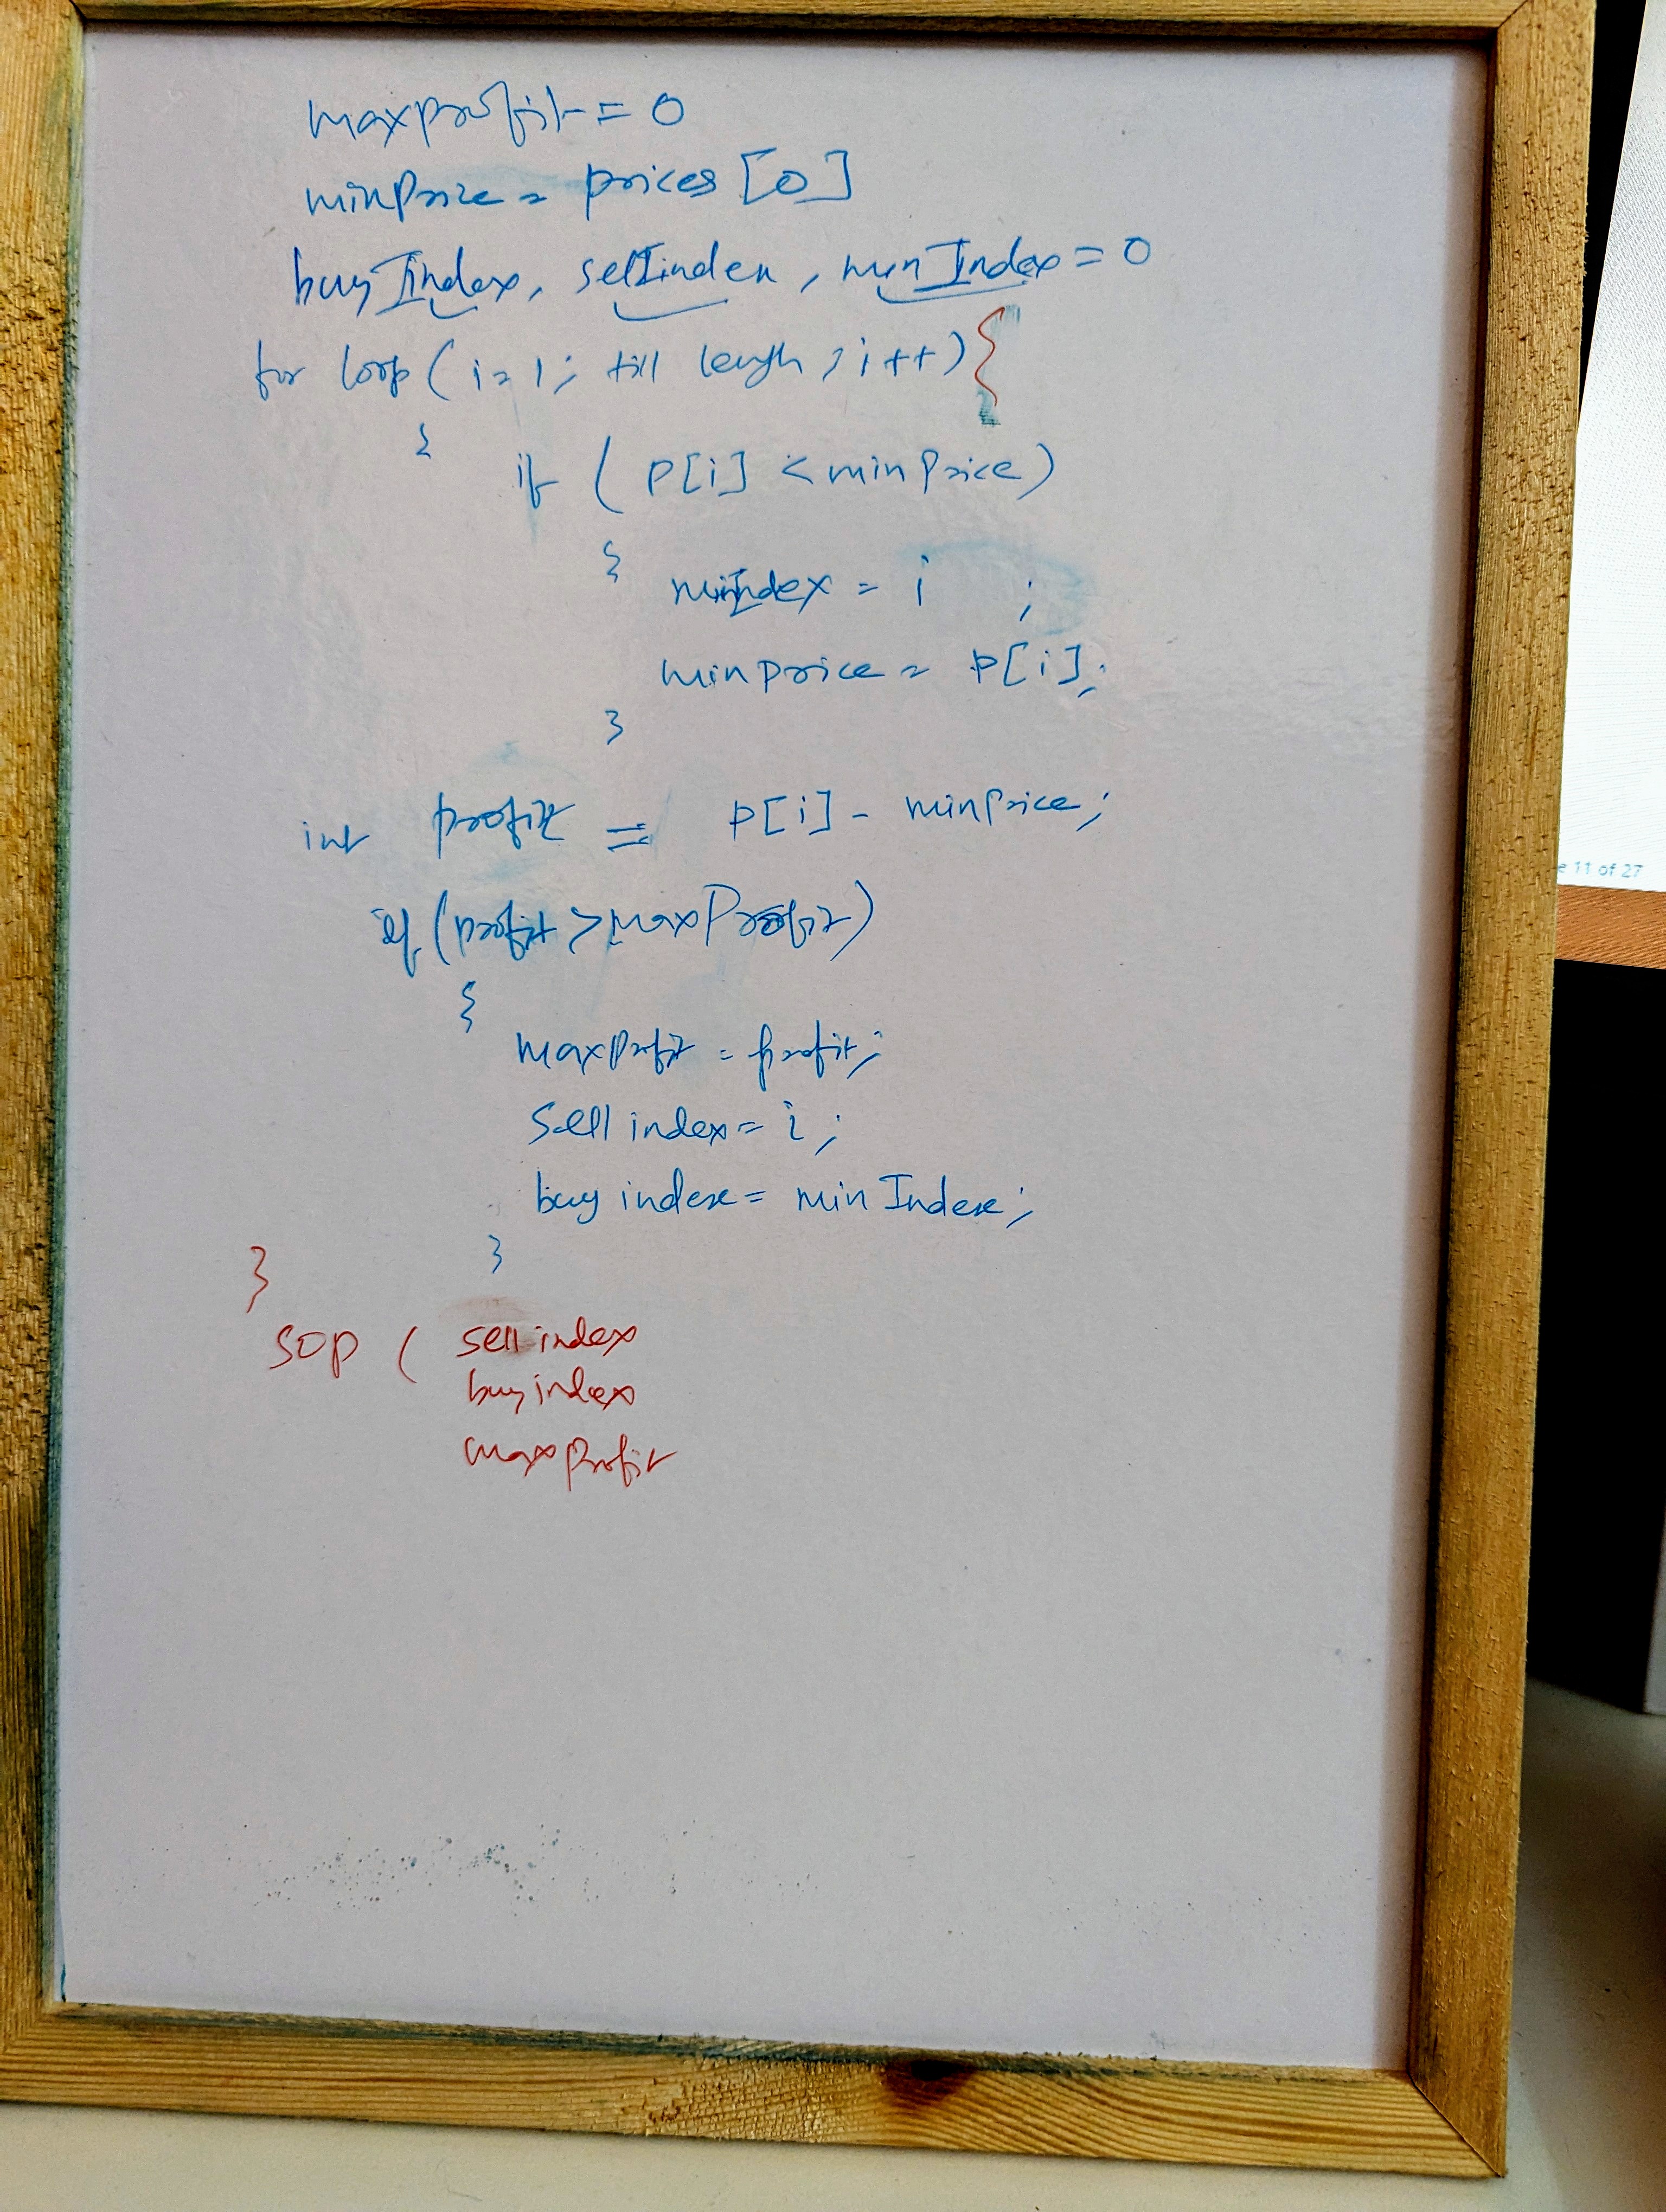 maxprofit = 0
minPrice = prices [0]
buyIndex, sellIndex, minIndex = 0
for loop ( i=1; till length ; i++) {
{ if ( P[i] < minPrice)
{ minIndex = i ;
minprice = P[i];
}
int profit = P[i] - minPrice;
if (profit > maxProfit)
{
maxProfit = profit;
Sell index = i ;
buy index = min Index ;
}
}
SOP ( sell index
buy index
maxProfit
e 11 of 27